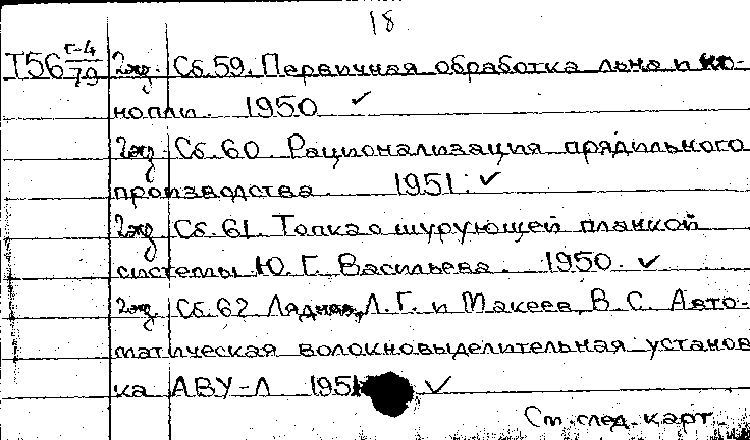 18
Т56 Г-4/79 2экз. Сб. 59. Первичная обработка льна и ко-
нопли. 1950 ✓
2экз Сб. 60 Рационализация прядильного
производства 1951. ✓
2экз Сб. 61. Топка с шурующей планкой
системы Ю. Г. Васильева. 1950. ✓
2экз. Сб. 62 Л. Г. и Макеев, В. С. Авто-
матическая волокновыделительная установ
ка АВУ-Л 1951 ✓
См. след. карт.